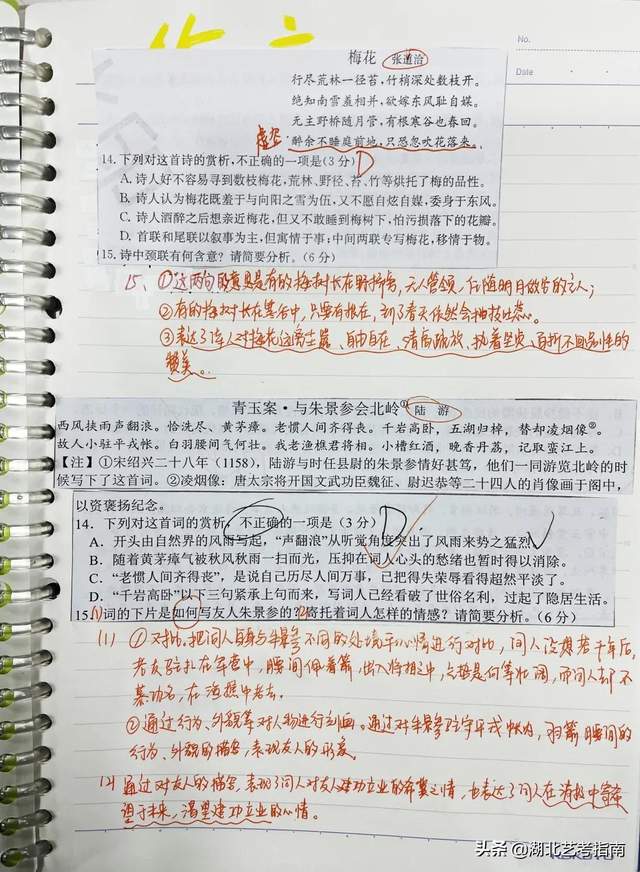 No.
Date
梅花 张道洽
行尽荒林一径苔，竹梢深处数枝开。
绝知南雪羞相并，欲嫁东风耻自媒。
无主野桥随月管，有根寒谷也春回。
醉余不睡庭前地，只恐忽吹花落来。
14.下列对这首诗的赏析，不正确的一项是(3分) D
A.诗人好不容易寻到数枝梅花，荒林、野径、苔、竹等烘托了梅的品性。
B.诗人认为梅花既羞于与向阳之雪为伍，又不愿自炫自媒，委身于东风。
C.诗人酒醉之后想亲近梅花，但又不敢睡到梅树下，怕污损落下的花瓣。
D.首联和尾联以叙事为主，但寓情于事；中间两联专写梅花，移情于物。
15.诗中颈联有何含意？请简要分析。(6分)
15、①这两句 意思是有的梅树长在野桥旁，无人管领，任随明月做它的主人；
②有的梅树长在寒谷中，只要有根在，到了春天依然会抽枝吐蕊。
③表达了诗人对梅花 、自由自在、清高 放、执着坚贞、百折不回品性的
赞美。
青玉案·与朱景参会北岭① 陆 游
西风挟雨声翻浪。恰洗尽、黄茅瘴。老惯人间齐得丧。千岩高卧，五湖归棹，替却凌烟像②。
故人小驻平戎帐。白羽腰间气何壮。我老渔樵君将相。小槽红酒，晚香丹荔，记取蛮江上。
【注】①宋绍兴二十八年（1158），陆游与时任县尉的朱景参情好甚笃，他们一同游览北岭的时
候写下了这首词。②凌烟像：唐太宗将开国文武功臣魏征、尉迟恭等二十四人的肖像画于阁中，
以资褒扬纪念。
14．下列对这首词的赏析，不正确的一项是（3分） D
A．开头由自然界的风雨写起，“声翻浪”从听觉角度突出了风雨来势之猛烈。
B．随着黄茅瘴气被秋风秋雨一扫而光，压抑在词人心头的愁绪也暂时得以消除。
C．“老惯人间齐得丧”，是说自己历尽人间万事，已把得失荣辱看得超然平淡了。
D．“千岩高卧”以下三句紧承上句而来，写词人已经看破了世俗名利，过起了隐居生活。
15.词的下片是如何写友人朱景参的？寄托着词人怎样的情感？请简要分析。（6分）
(1) ①对比，把词人自身与朱景参不同的处境和心情进行对比，词人设想若干年后，
老友驻扎在军营中，腰间佩着箭，出入将相之中， 是何等壮阔，而词人却不
慕功名，在渔樵中老去。
②通过行为、外貌等对人物进行刻画。通过对朱景参驻守平戎帐内，羽箭腰间的
行为、外貌的描写，表现友人的形象。
(2) 通过对友人的描写，表现了词人对友人建功立业的希冀之情，也表达了词人在消极中寄希
望于未来，渴望建功立业的心情。
头条 @湖北艺考指南